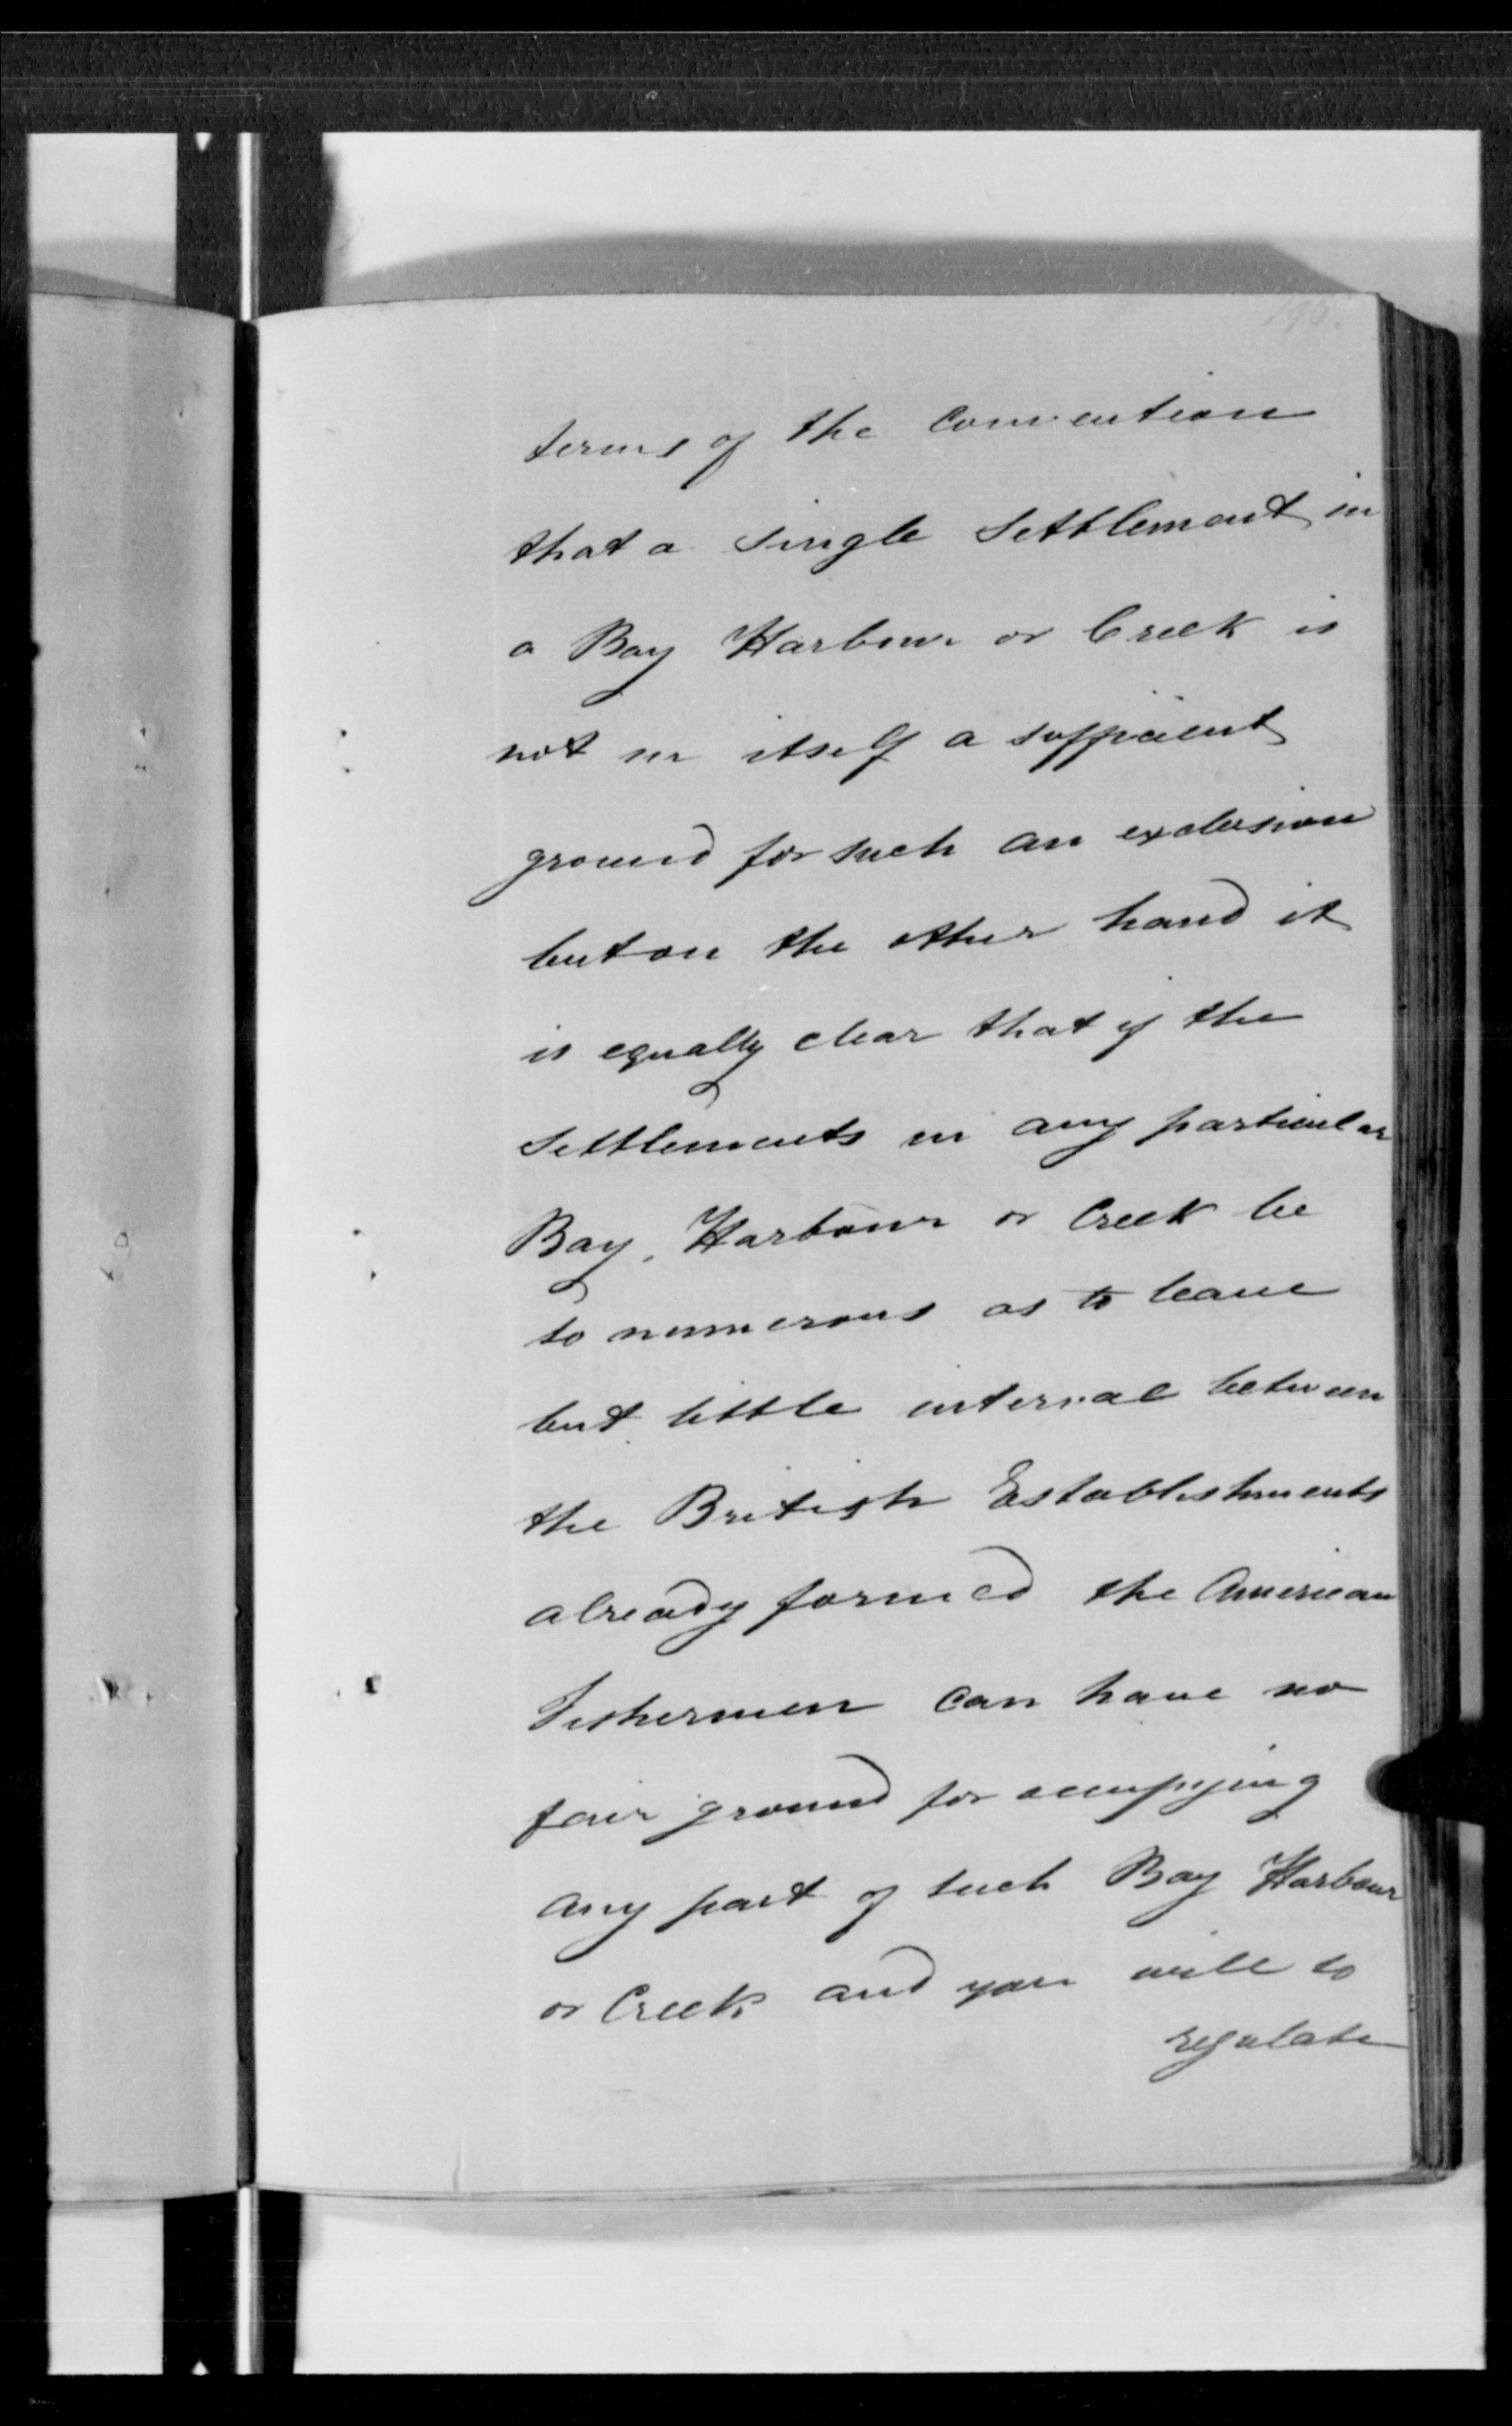 terms of the Convention
that a single Settlement in
a Bay Harbour or Creek is
not in itself a sufficient
ground for such an exclusion
but on the other hand it
is equally clear that if the
Settlements in any particular
Bay, Harbour or Creek be
so numerous as to leave
but little interval between
the British Establishments
already formed the American
Fishermen can have no
fair ground for occupying
any part of such Bay Harbour
or Creek and you will so
regulate